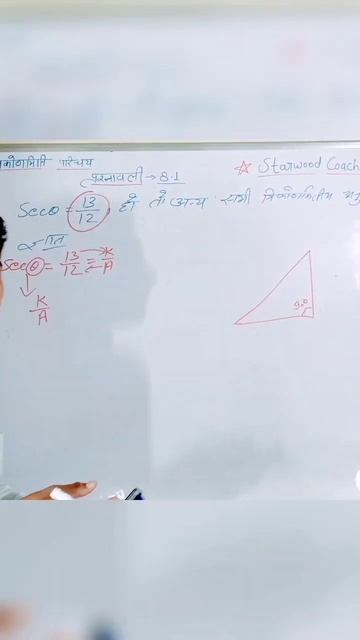 त्रिकोणमिति परिचय
प्रश्नावली → 8.1
☆ Starwood Coach
Secθ = 13/12, हो तो अन्य सभी त्रिकोणमितीय अनु
ज्ञात
Secθ = 13/12 = K/A
K/A
90°